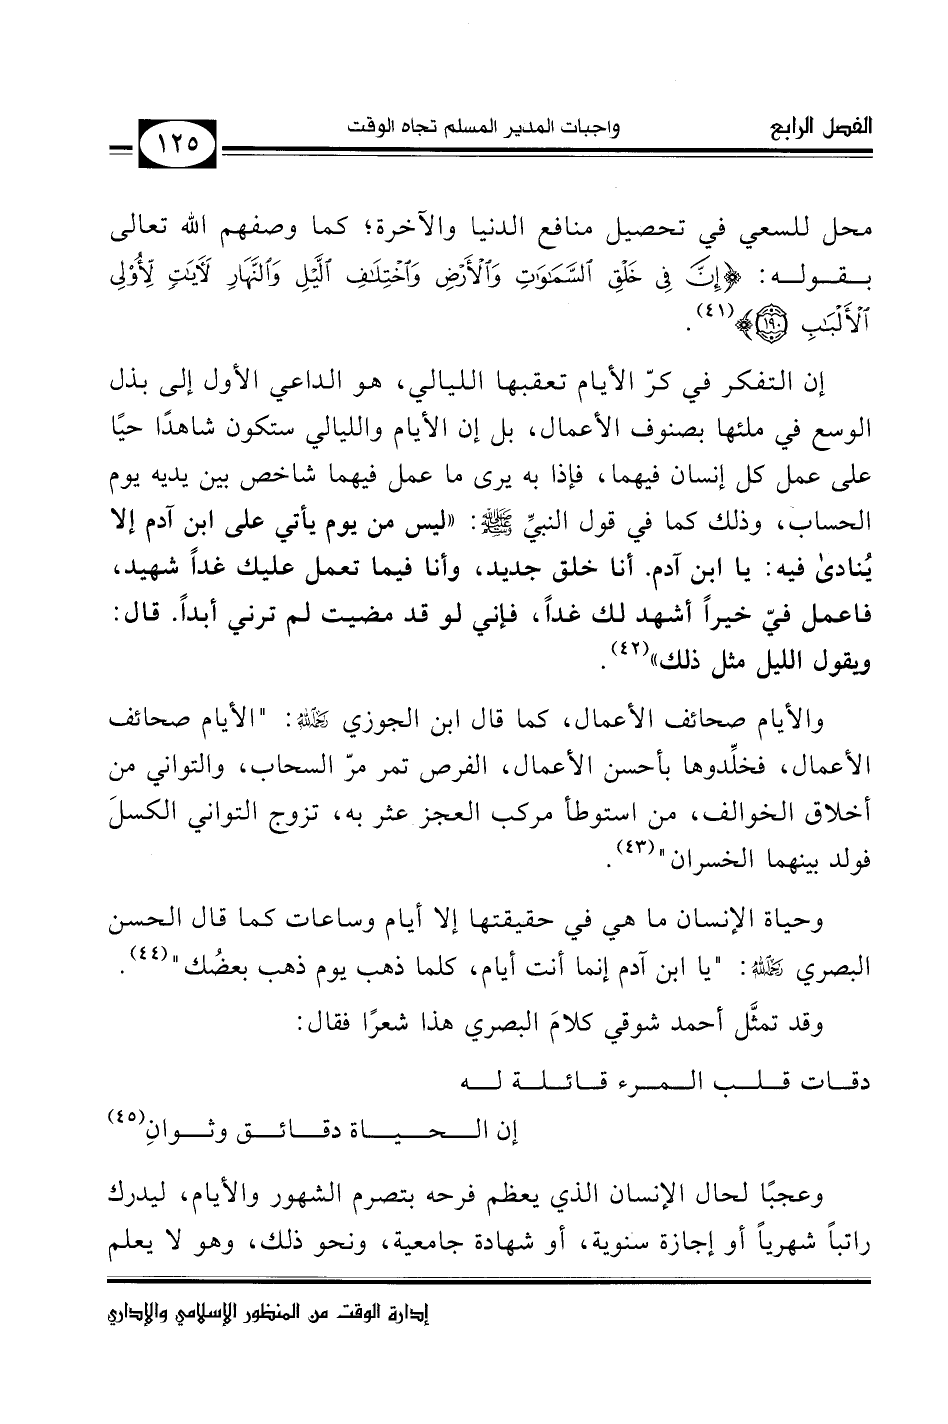 الفصل الرابع
واجبات المدير المسلم تجاه الوقت
١٢٥
محل للسعي في تحصيل منافع الدنيا والآخرة؛ كما وصفهم الله تعالى
بقوله: ﴿إِنَّ فِي خَلْقِ ٱلسَّمَٰوَٰتِ وَٱلْأَرْضِ وَٱخْتِلَٰفِ ٱلَّيْلِ وَٱلنَّهَارِ لَءَايَٰتٍ لِّأُو۟لِي
ٱلْأَلْبَٰبِ ١٩٠﴾(٤١).
إن التفكر في كرّ الأيام تعقبها الليالي، هو الداعي الأول إلى بذل
الوسع في ملئها بصنوف الأعمال، بل إن الأيام والليالي ستكون شاهدًا حيًا
على عمل كل إنسان فيهما، فإذا به يرى ما عمل فيهما شاخص بين يديه يوم
الحساب، وذلك كما في قول النبيّ ﷺ: «ليس من يوم يأتي على ابن آدم إلا
يُنادىٰ فيه: يا ابن آدم. أنا خلق جديد، وأنا فيما تعمل عليك غداً شهيد،
فاعمل فيّ خيراً أشهد لك غداً، فإني لو قد مضيت لم ترني أبداً. قال:
ويقول الليل مثل ذلك»(٤٢).
والأيام صحائف الأعمال، كما قال ابن الجوزي رحمه الله: "الأيام صحائف
الأعمال، فخلِّدوها بأحسن الأعمال، الفرص تمر مرّ السحاب، والتواني من
أخلاق الخوالف، من استوطأ مركب العجز عثر به، تزوج التواني الكسلَ
فولد بينهما الخسران"(٤٣).
وحياة الإنسان ما هي في حقيقتها إلا أيام وساعات كما قال الحسن
البصري رحمه الله: "يا ابن آدم إنما أنت أيام، كلما ذهب يوم ذهب بعضُك"(٤٤).
وقد تمثَّل أحمد شوقي كلامَ البصري هذا شعرًا فقال:
دقات قلب المرء قائلة له
إن الحياة دقائق وثوانِ(٤٥)
وعجبًا لحال الإنسان الذي يعظم فرحه بتصرم الشهور والأيام، ليدرك
راتباً شهرياً أو إجازة سنوية، أو شهادة جامعية، ونحو ذلك، وهو لا يعلم
إدارة الوقت من المنظور الإسلامي والإداري